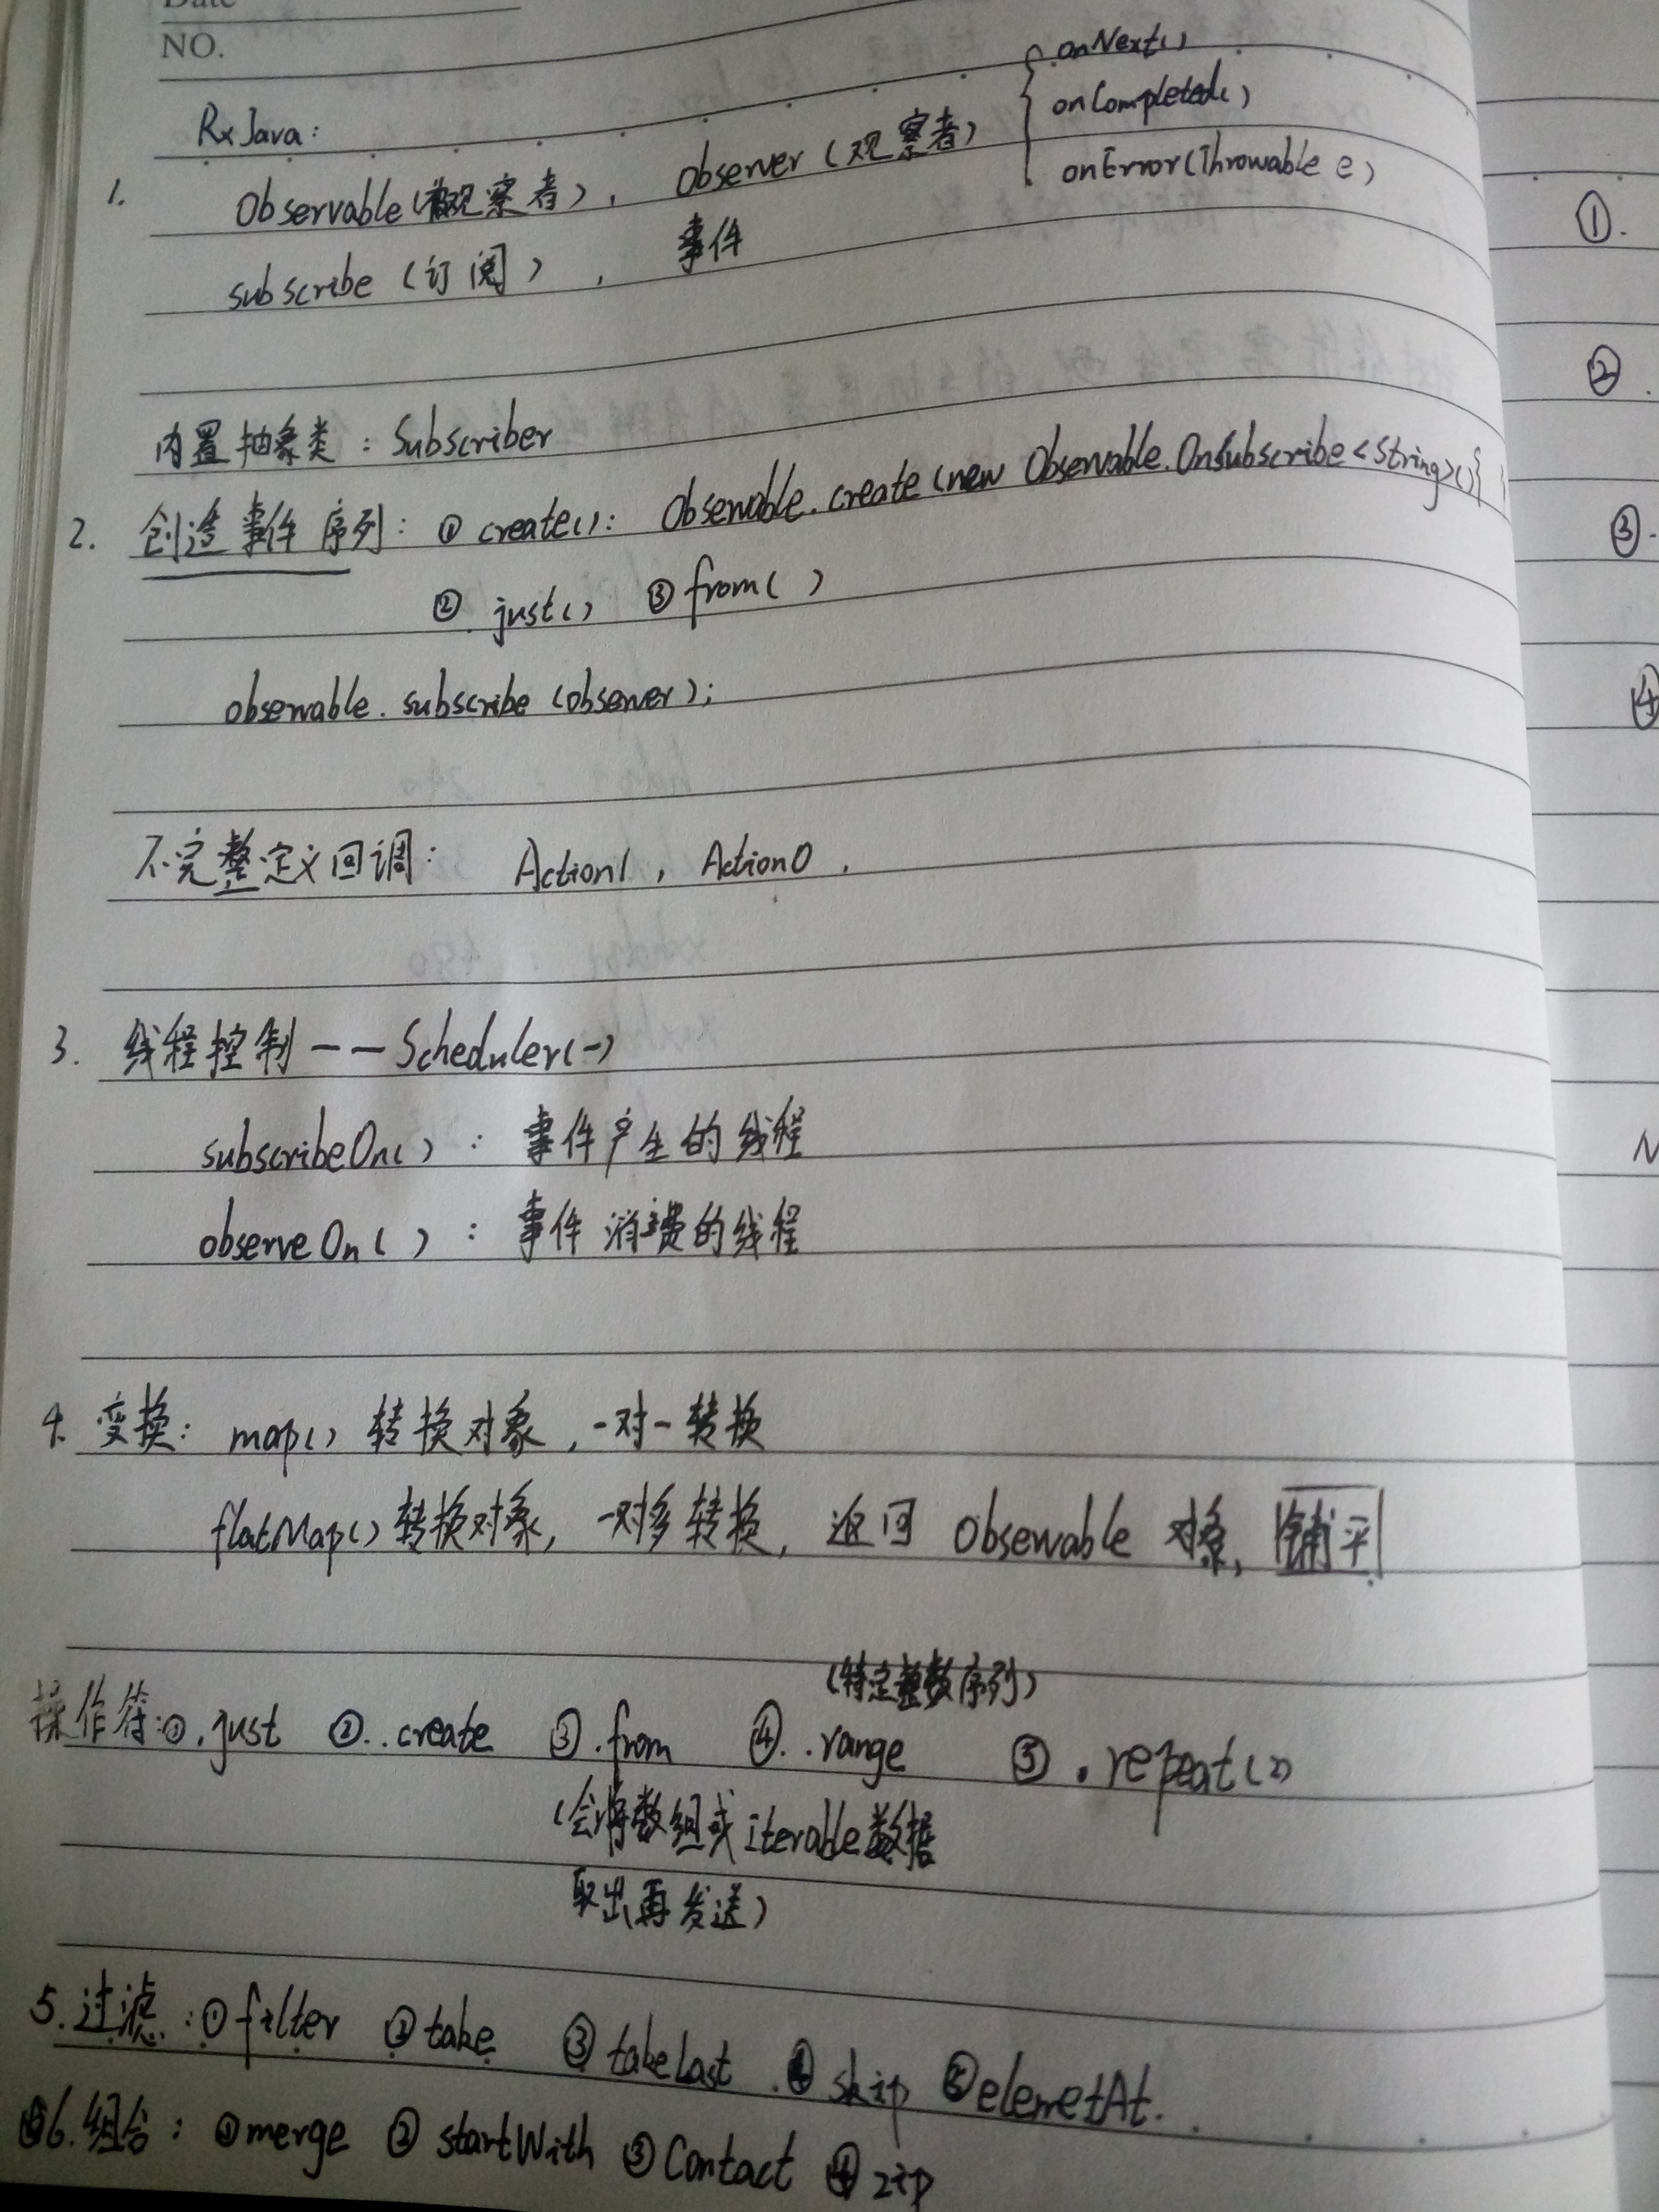 Date
NO.
RxJava:
1. Observable(被观察者), Observer(观察者) { onNext()
onCompleted()
onError(Throwable e)
subscribe (订阅), 事件
内置抽象类: Subscriber
2. 创造事件序列: ① create(): Observable.create(new Observable.OnSubscribe<String>(){ }
② just() ③ from( )
observable.subscribe (observer);
不完整定义回调: Action1, Action0.
3. 线程控制——Scheduler(一)
subscribeOn(): 事件产生的线程
observeOn( ): 事件消费的线程
4. 变换: map() 转换对象, 一对一转换
flatMap() 转换对象, 一对多转换, 返回 Observable 对象, 铺平
(特定整数序列)
操作符: ①.just ②..create ③.from ④..range ⑤.repeat(2)
(会将数组或iterable数据
取出再发送)
5.过滤: ①filter ②take ③takeLast ④skip ⑤elemetAt.
6.组合: ①merge ②startWith ③Contact ④zip
①.
②.
③.
④
N